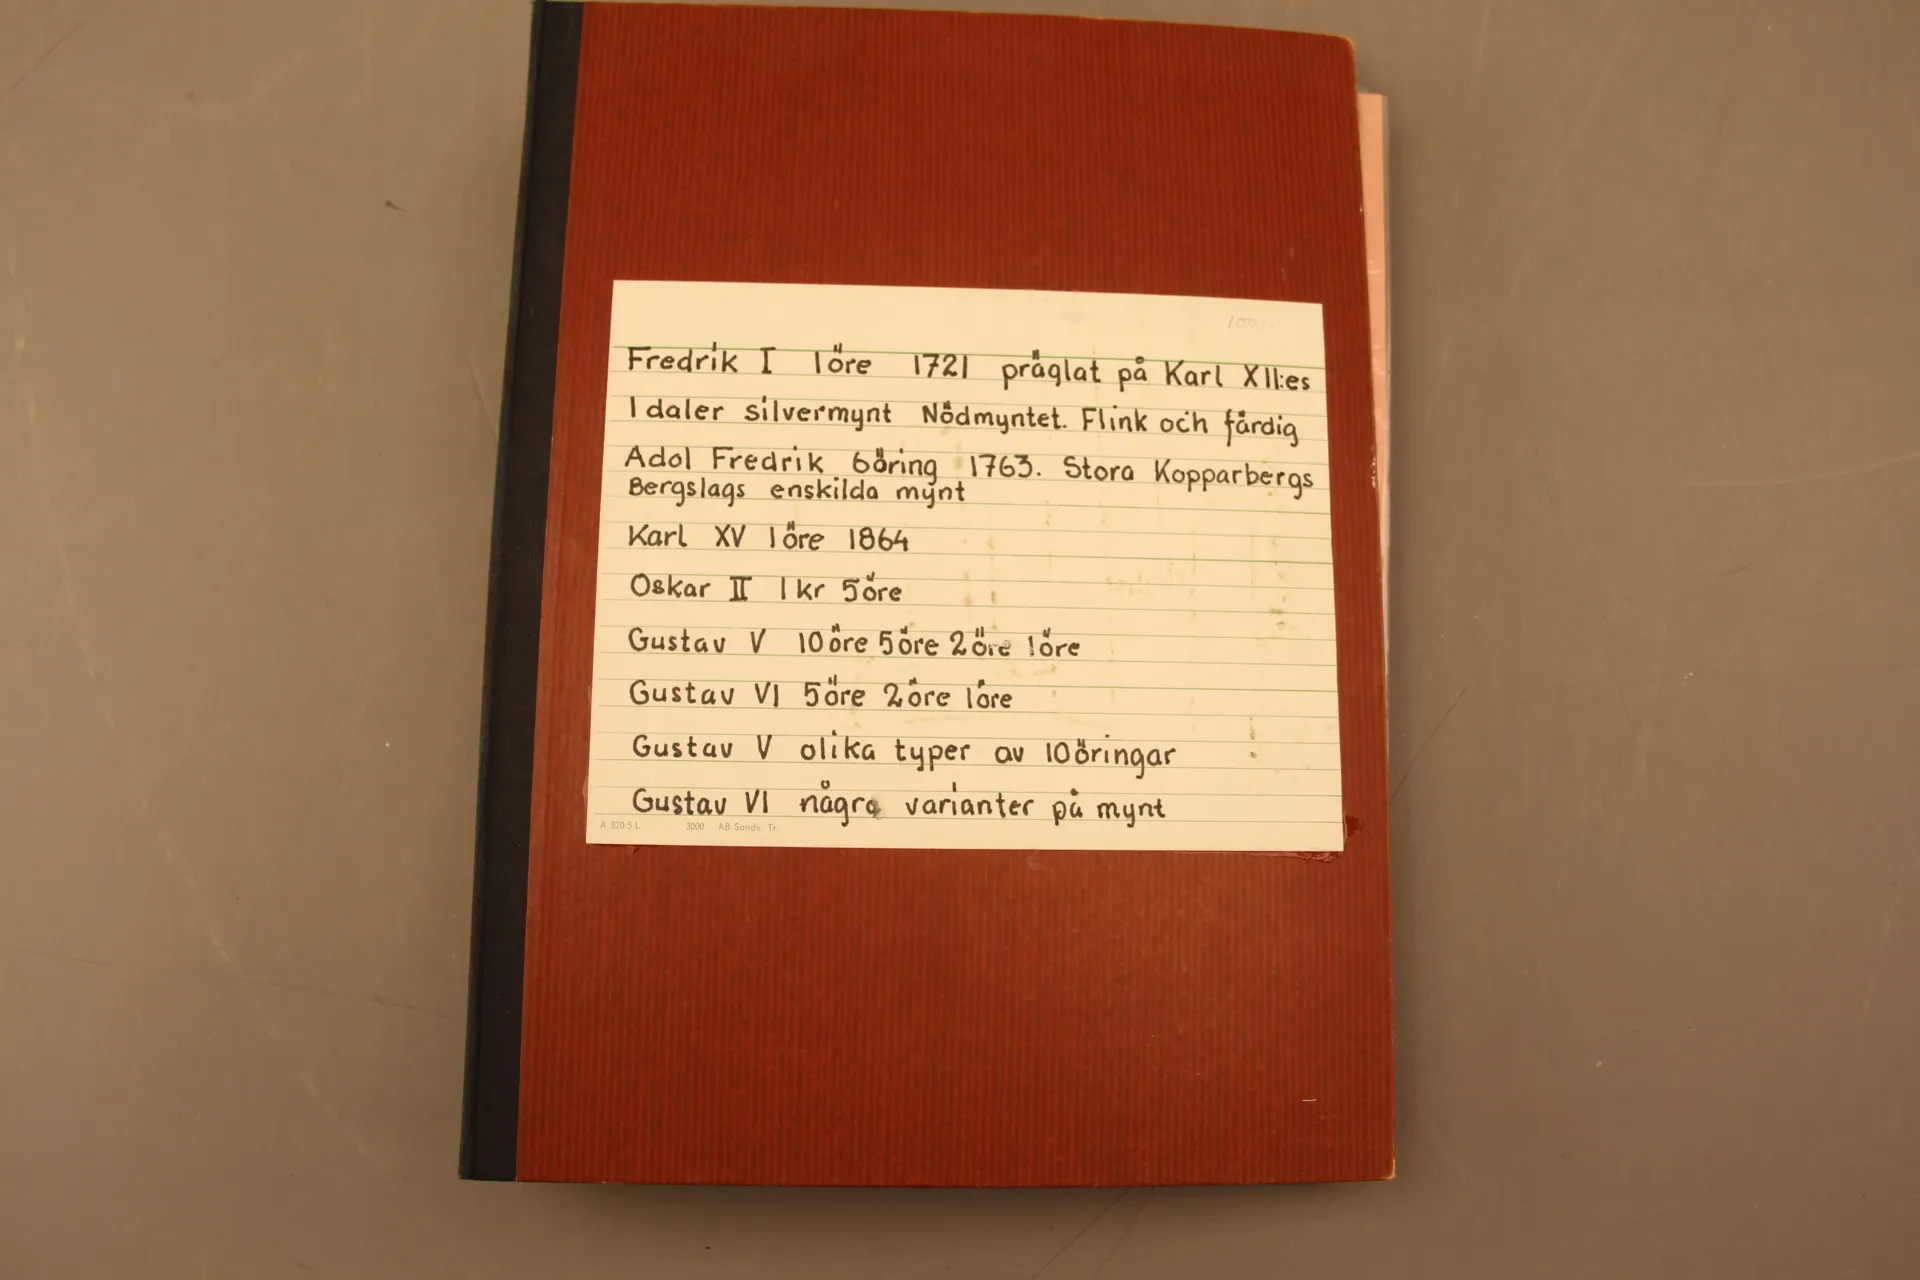 100:-
Fredrik I 1öre 1721 präglat på Karl XII:es
1 daler silvermynt Nödmyntet. Flink och färdig
Adol Fredrik 6öring 1763. Stora Kopparbergs
Bergslags enskilda mynt
Karl XV 1öre 1864
Oskar II 1kr 5öre
Gustav V 10öre 5öre 2öre 1öre
Gustav VI 5öre 2öre 1öre
Gustav V olika typer av 10öringar
Gustav VI några varianter på mynt
A 820.5 L 3000 AB Sandv. Tr.